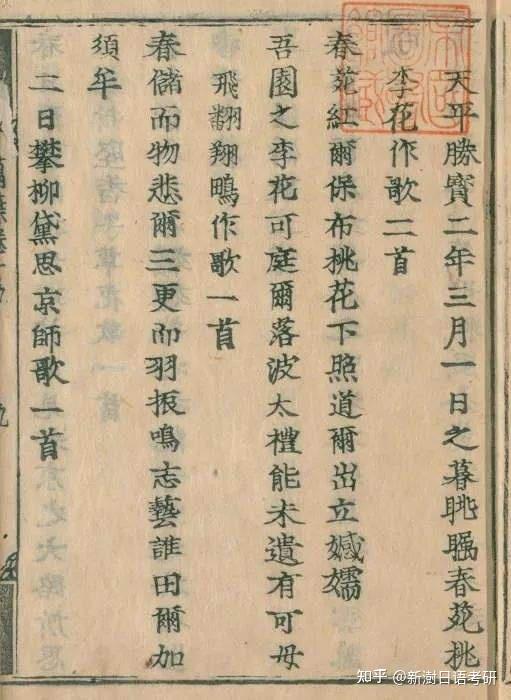 天平勝寶二年三月一日之暮眺矚春苑桃
李花作歌二首
春苑紅爾保布桃花下照道爾出立𡢳嬬
吾園之李花可庭爾落波太禮能未遣有可母
飛翻翔鴫作歌一首
春儲而物悲爾三更而羽振鳴志藝誰田爾加
須牟
二日攀柳黛思京師歌一首
知乎 @新澍日语考研